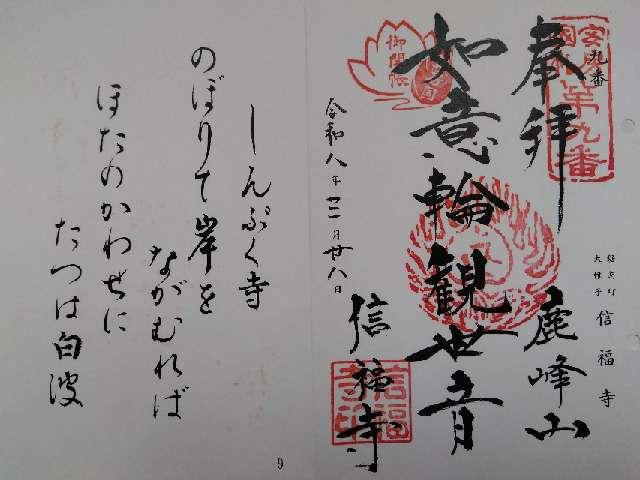 奉拝
九番
第九番
鹿峰山
信福寺
如意輪観世音
御開帳
令和八年三月廿八日
信福寺
信福寺印
しんぷく寺
のぼりて岸を
ながむれば
ほたのかわせに
たつは白波
9